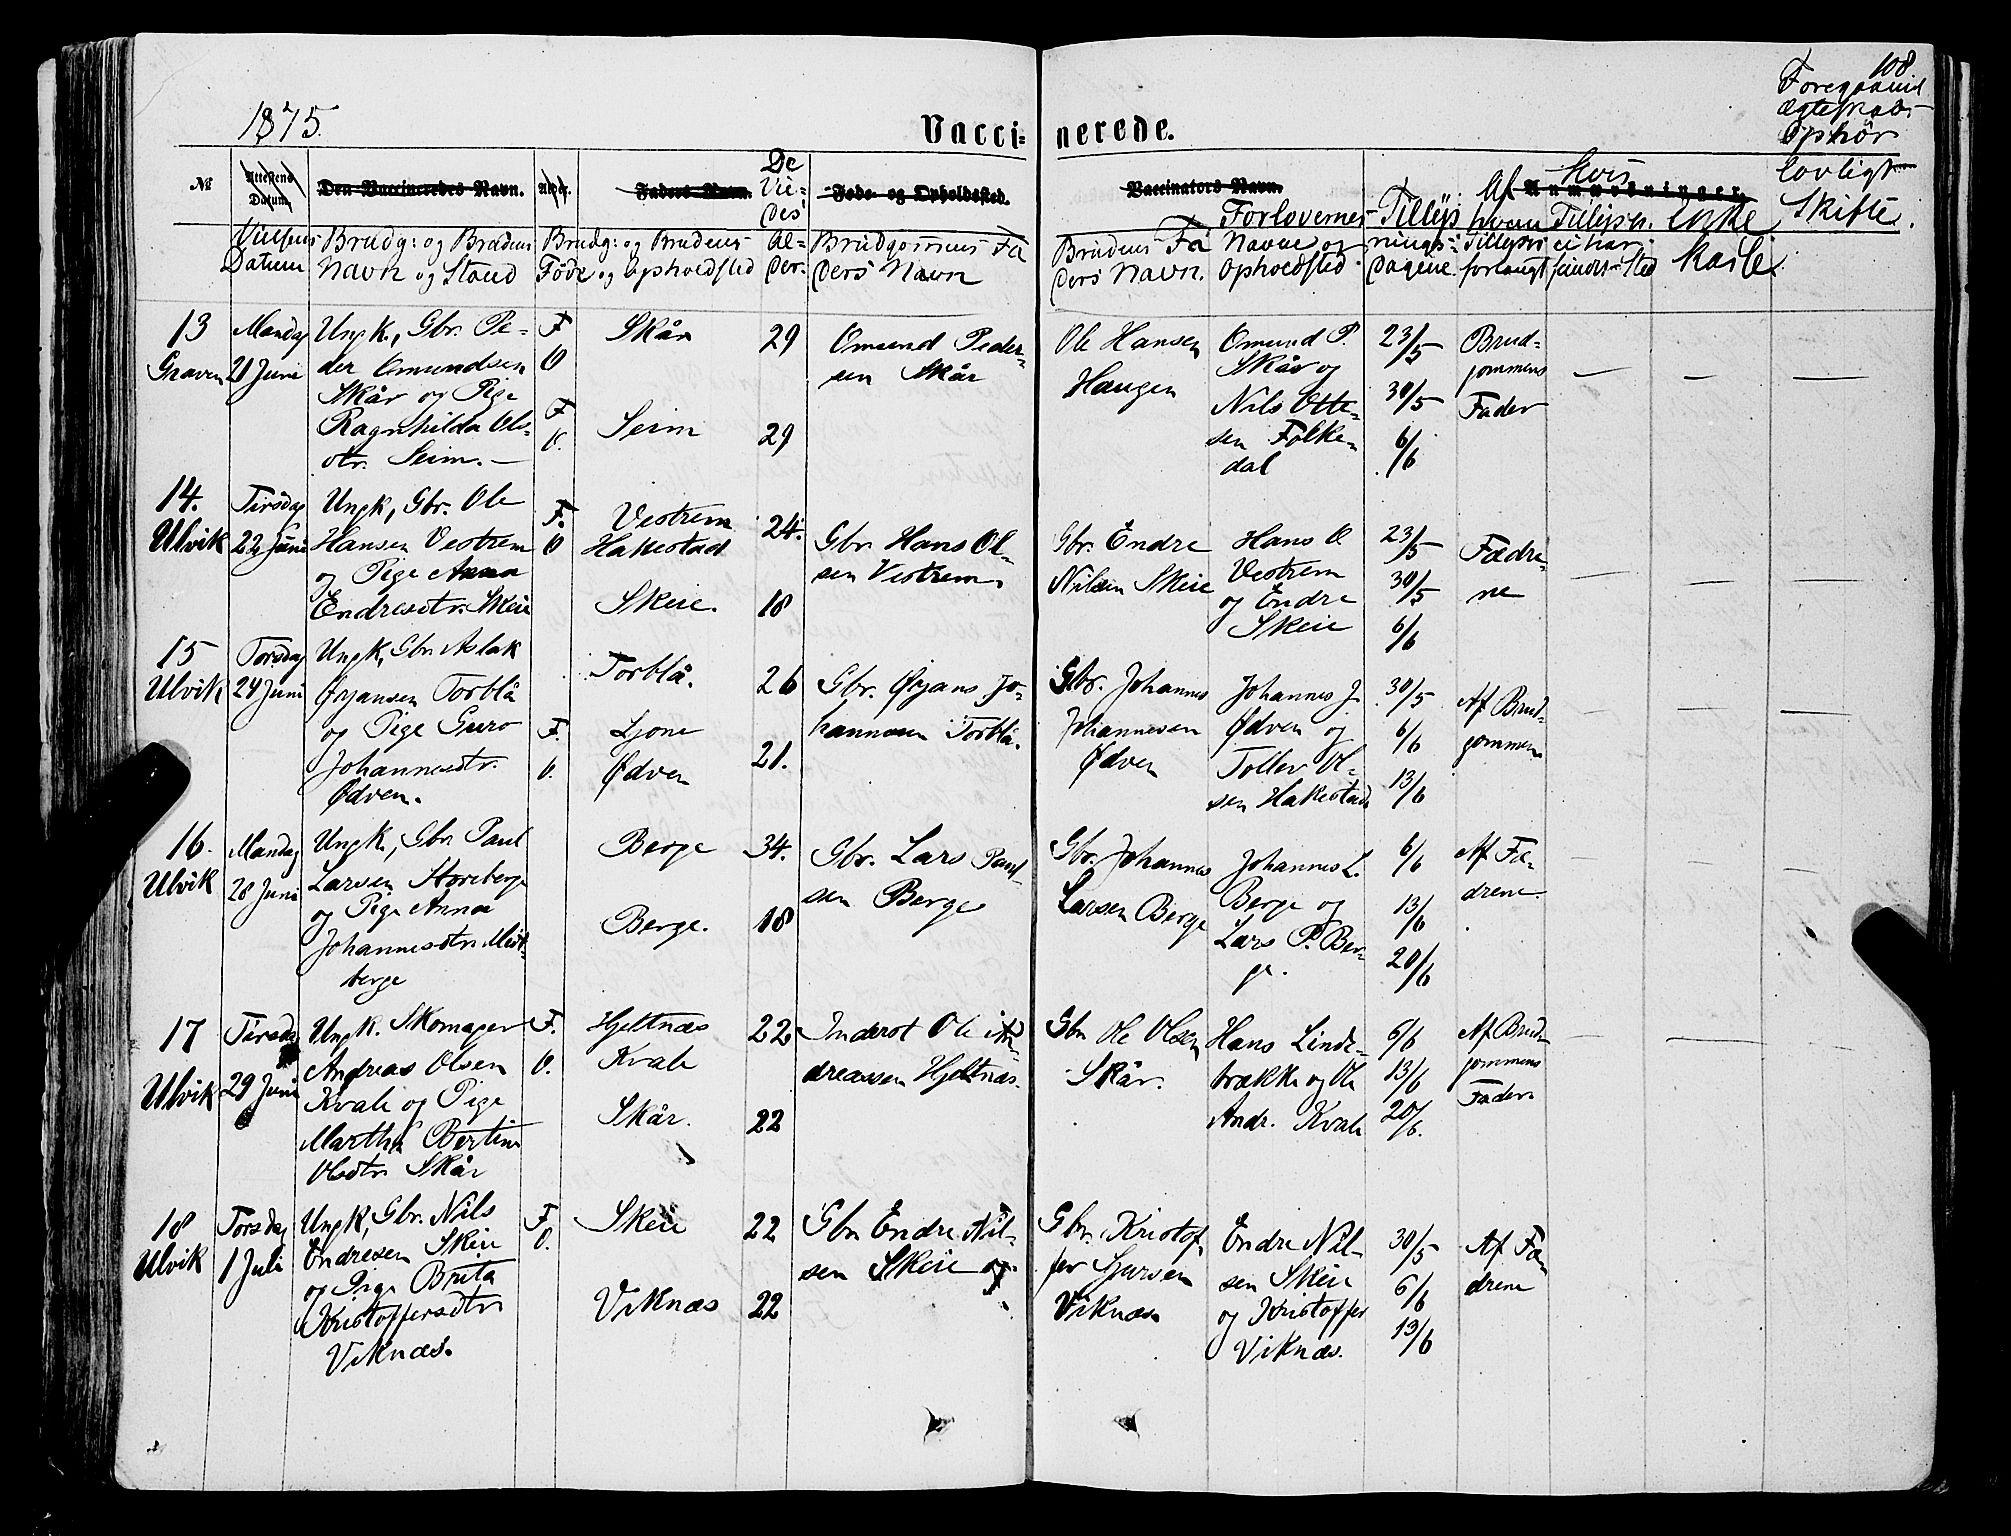 108
Foregaaend
ægteskabs
Ophör
lovligt
Skifte
1875.
Vacci=
nerede.
№
Attestens Datum
Den Vaccineredes Navn.
Alder.
Faders Navn.
De Vie-
des
Al-
der.
Føde- og Opholdssted.
Vaccinators Navn.
Anmærkninger.
Vielsens
Datum
Brudg: og Brudens
Navn og Stand
Brudg: og Brudens
Føde og Opholdsted
Brudgommens Fa
ders Navn
Brudens Fa
ders Navn.
Forlovernes
Navne og
Opholdsted
Tillys
nings-
dagene.
Af
hvem
Tillysn.
forlangt
Hvis
Tillysn.
ei har
fundet Sted
13
Graven
Mandag
21 Juni
Ungk., Gbr. Pe-
der Omundsen
Skår og Pige
Ragnhilda Ols-
dtr. Seim. —
F
O
F
O.
Skår
Seim
29
29
Omund Peder-
sen Skår
Ole Hansen
Haugen
Omund P.
Skår og
Nils Otte-
sen Folke-
dal
23/5
30/5
6/6
Brud-
gommens
Fader
14.
Ulvik
Tirsdag
22 Juni
Ungk, Gbr. Ole
Hansen Vestrem
og Pige Anna
Endresdtr. Skeie
F.
O
Vestrem
Hakestad
Skeie.
24.
18
Gbr. Hans Ol-
sen Vestrem.
Gbr. Endre
Nilsen Skeie
Hans O.
Vestrem
og Endre
Skeie
23/5
30/5
6/6
Fædre-
ne
15
Ulvik
Torsdag
24 Juni
Ungk, Gbr. Aslak
Ørjansen Torblå
og Pige Guro
Johannesdtr.
Ødven.
F.
O.
Torblå.
Ljone
Ødven
26
21.
Gbr. Ørjans Jo-
hannesen Torblå.
Gbr. Johannes
Johannesen
Ødven
Johannes J.
Ødven og
Tollev Ol-
sen Hakestad
30/5
6/6
13/6
Af Brud-
gommen
16.
Ulvik
Mandag
28 Juni
Ungk., Gbr. Paul
Larsen Storeberge
og Pige Anna
Johannesdtr. Midt-
berge
Berge
Berge.
34.
18
Gbr. Lars Paul-
sen Berge
Gbr. Johannes
Larsen Berge
Johannes L.
Berge og
Lars P. Ber-
ge.
6/6
13/6
20/6
Af Fæ-
drene
17
Ulvik
Tirsdag
29 Juni
Ungk. Skomager
Andreas Olsen
Kvale og Pige
Martha Bertine
Olsdtr. Skår
F.
O.
Hjeltnæs
Kvale
Skår.
22
22
Inderst Ole An-
dreassen Hjeltnæs.
Gbr Ole Olsen
Skår.
Hans Linde-
brække og Ole
Andr. Kvale
6/6
13/6
20/6.
Af Brud-
gommens
Fader
18
Ulvik
Torsdag
1 Juli
Ungk, Gbr. Nils
Endresen Skeie
og Pige Brita
Kristoffersdtr
Viknæs.
F.
O.
Skeie
Viknæs
22
22
Gbr Endre Nil-
sen Skeie og
Gbr. Kristof-
fer Sjursen
Viknæs.
Endre Nil-
sen Skeie
og Kristoffer
Viknæs.
30/5
6/6
13/6
Af Fæ
drene